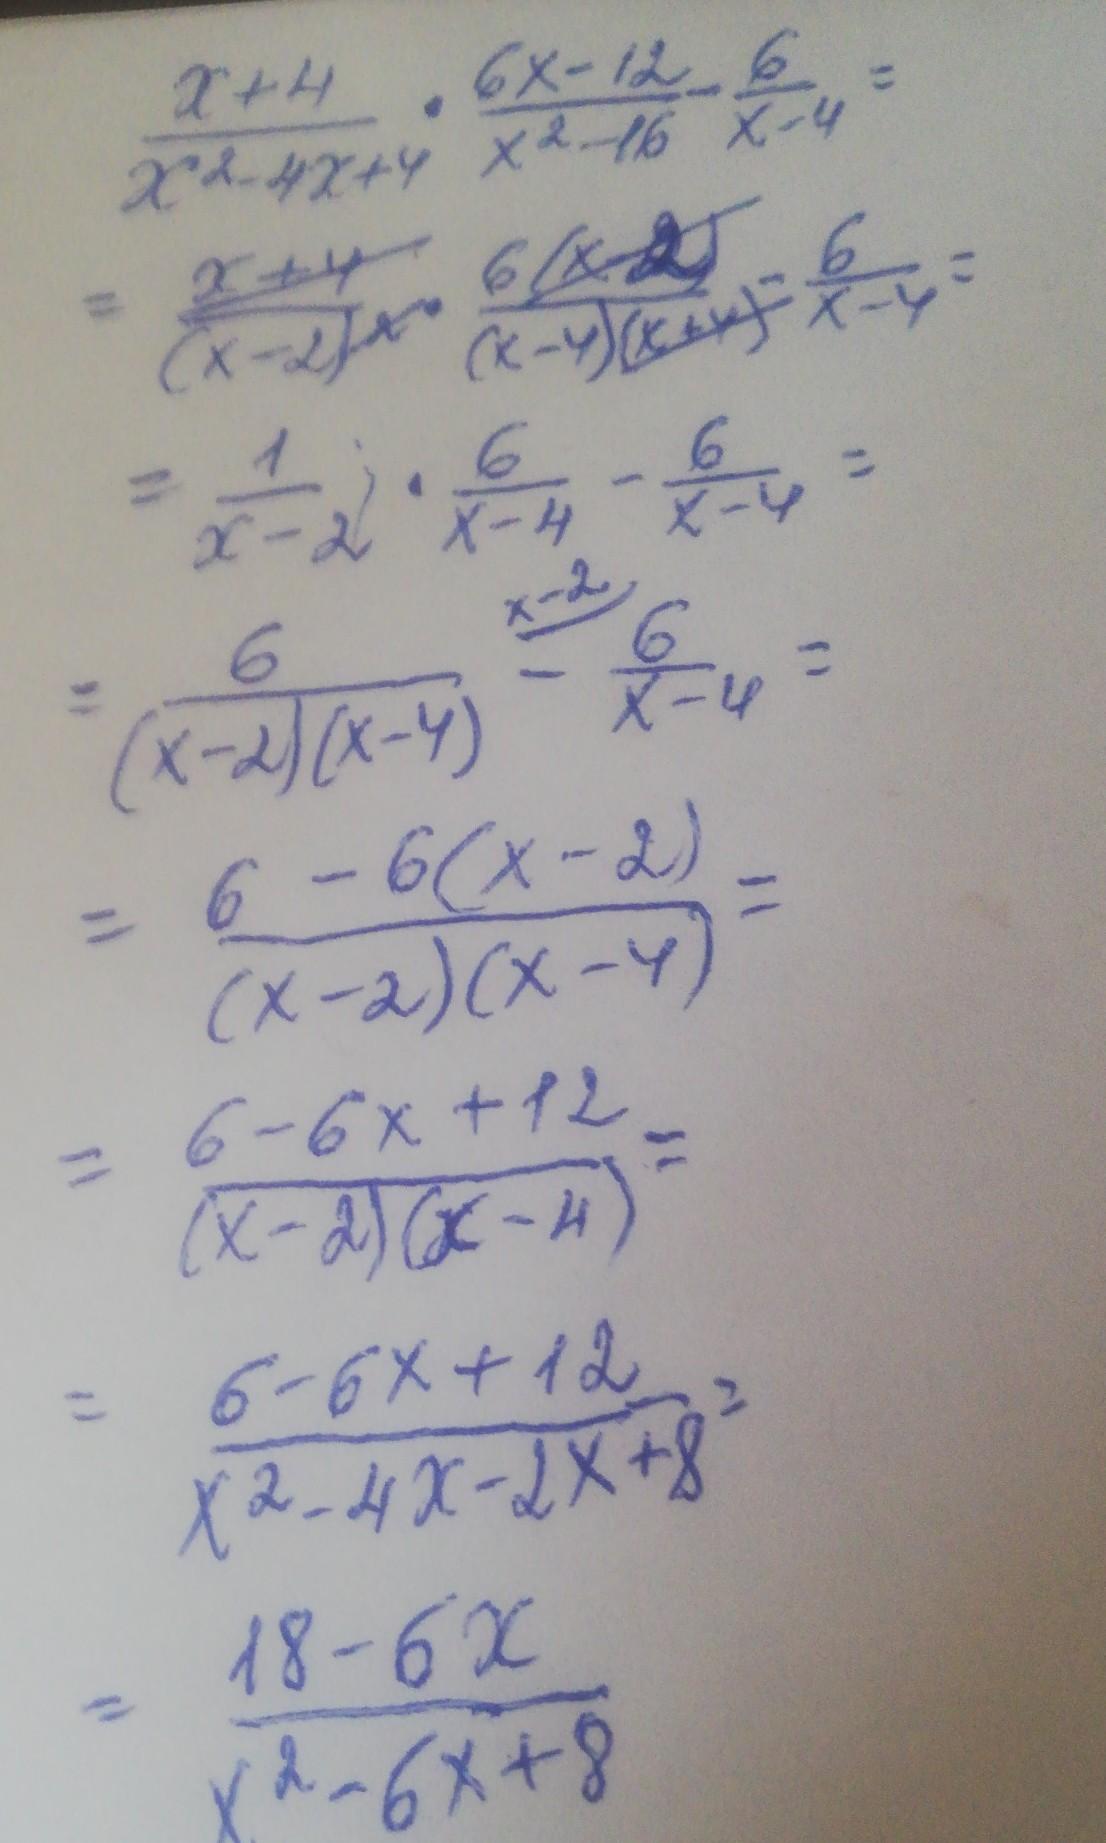 (x+4)/(x²-4x+4) · (6x-12)/(x²-16) - 6/(x-4) =
= (x+4)/(x-2)² · 6(x-2)/((x-4)(x+4)) - 6/(x-4) =
= 1/(x-2) · 6/(x-4) - 6/(x-4) =
x-2
= 6/((x-2)(x-4)) - 6/(x-4) =
= (6 - 6(x-2))/((x-2)(x-4)) =
= (6-6x+12)/((x-2)(x-4)) =
= (6-6x+12)/(x²-4x-2x+8) =
= (18-6x)/(x²-6x+8)